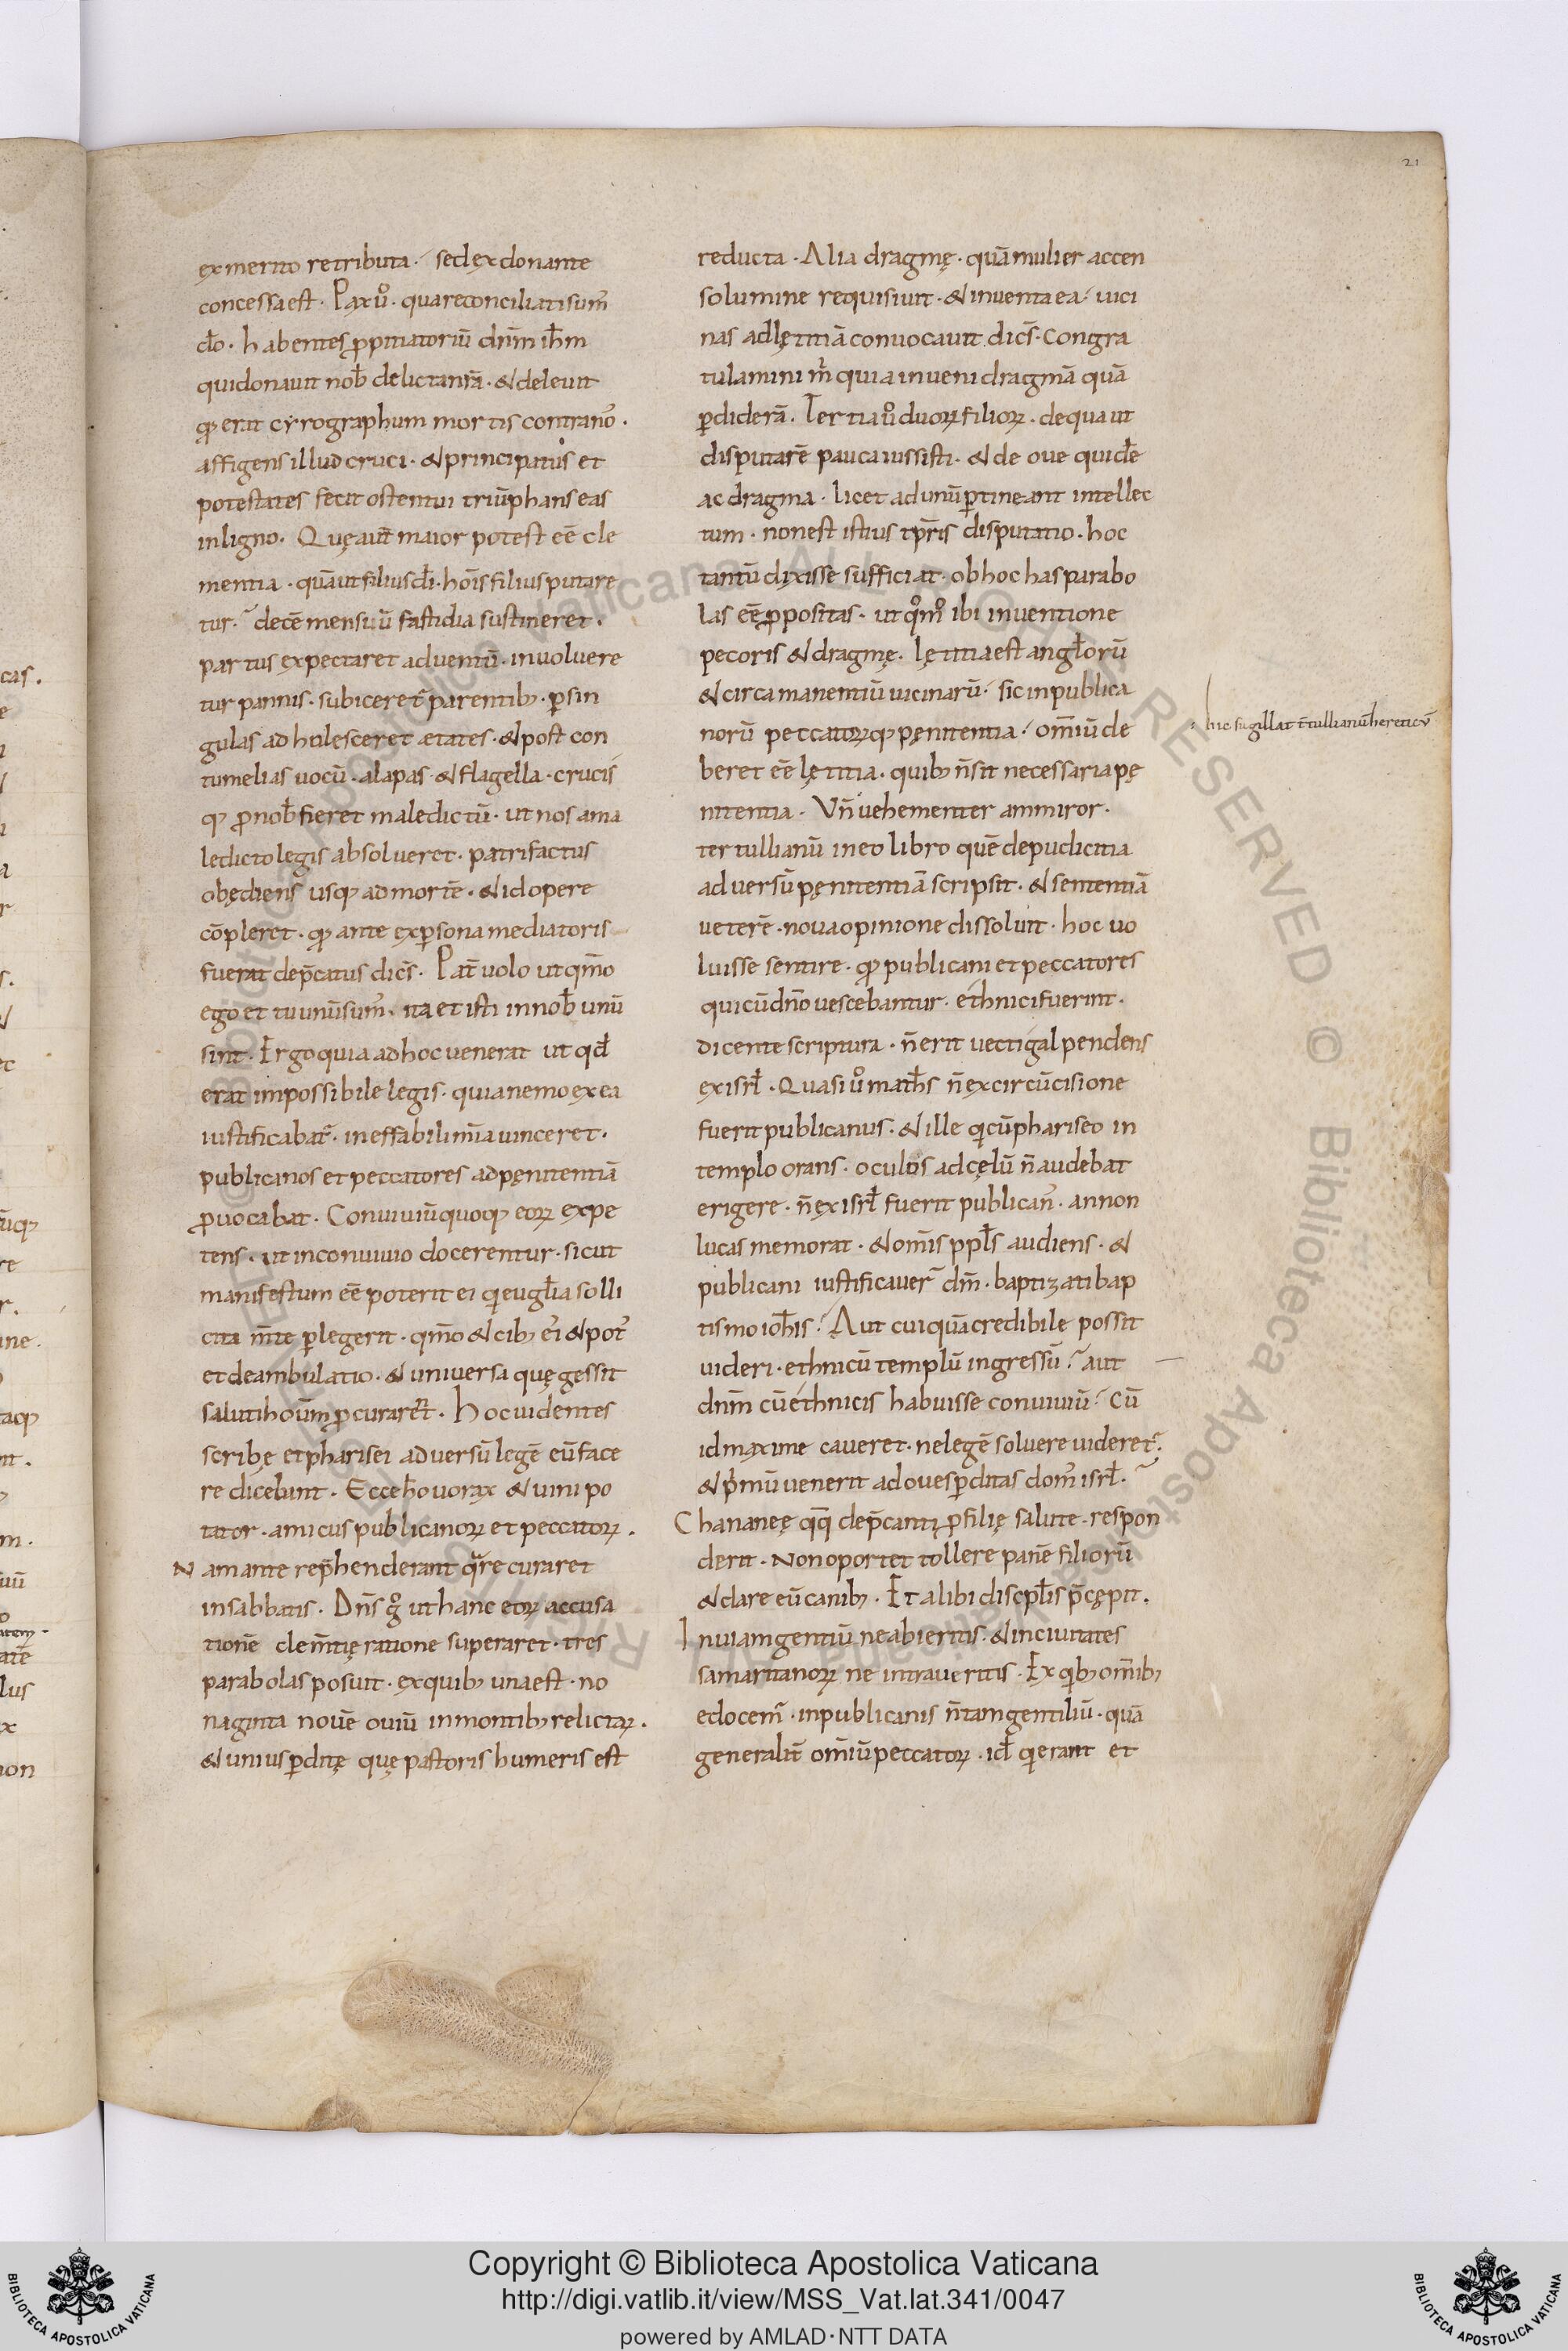 21
ex merito retributa · sed ex donante
concessa est · Pax ũ · qua reconciliati sum̃
dõ · habentes ppitiatoriũ dnm̃ ihm̃
qui donauit nob̄ delicta nr̃a · & deleuit
qđ erat cyrographum mortis contra nõ ·
affigens illud cruci · & principatus et
potestates fecit ostentui triũphans eas
in ligno · Quę aut̃ maior potest eẽ cle
mentia · quã ut filius dī · hoĩs filius putare
tur · decẽ mensiũ fastidia sustineret ·
partus expectaret aduentũ · inuoluere
tur pannis · subiceret̃ parentib; · p sin
gulas adholesceret ætates · & post con
tumelias uocũ · alapas · & flagella · crucis
q; p nob̄ fieret maledictũ · ut nos a ma
ledicto legis absolueret · patri factus
obędiens usq; ad mortẽ · & id opere
cõpleret · qđ ante ex psona mediatoris
fuerat dep̃catus dic̃s · Pat̃ uolo ut qm̃o
ego et tu unũ sum̃ · ita et isti in nob̄ unũ
sint · Ergo quia ad hoc uenerat ut qđ
erat impossibile legis · quia nemo ex ea
iustificabat̃ · ineffabili mĩa uinceret ·
publicanos et peccatores ad pęnitentiã
puocabat · Conuiuiũ quoq; eoꝝ expe
tens · ut in conuiuio docerentur · sicut
manifestum eẽ poterit ei qi eugl̃ia solli
cita m̃te plegerit · qm̃o & cib; ei̾ & pot̾
et deambulatio · & uniuersa quę gessit
saluti hoũm pcurarẽt · Hoc uidentes
scribę et pharisei aduersũ legẽ eũ face
re dicebant · Ecce hõ uorax & uini po
tator · amicus publicanoꝝ et peccatoꝝ ·
Nam ante rep̃henderant q̃re curaret
in sabbatis · Dñs g̊ ut hanc eoꝝ accusa
tionẽ clem̃tię ratione superaret · tres
parabolas posuit · ex quib; una est · no
naginta nouẽ ouiũ in montib; relictaꝝ ·
& unius pditę quę pastoris humeris est
reducta · Alia dragmę · quã mulier accen
so lumine requisiuit · & inuenta ea · uici
nas ad lętitiã conuocauit dic̃s · Congra
tulamini m̃ quia inueni dragmã quã
pdiderã · Tertia ũ duoꝝ filioꝝ · de qua ut
disputarẽ pauca iussisti · & de oue quidẽ
ac dragma · licet ad unũ ptineant intellec
tum · non est istius tp̃ris disputatio · hoc
tantũ dixisse sufficiat · ob hoc has parabo
las eẽ ppositas · ut qm̊o ibi inuentione
pecoris & dragmę · lętitia est angl̃orũ
& circa manentiũ uicinarũ · sic in publica
norũ peccatoꝝq; pęnitentia · om̃iũ de
beret eẽ lętitia · quib; ñ sit necessaria pę
nitentia · Vñ uehementer ammiror ·
tertullianũ in eo libro quẽ de pudicitia
aduersũ pęnitentiã scripsit · & sententiã
ueterẽ · noua opinione dissoluit · hoc uo
luisse sentire · qđ publicani et peccatores
qui cũ dño uescebantur · ethnici fuerint ·
dicente scriptura · ñ erit uectigal pendens
ex isrl̄ · Quasi ũ math̃s ñ ex circũcisione
fuerit publicanus · & ille qi cũ phariseo in
templo orans · oculos ad cęlũ ñ audebat
erigere · ñ ex isrl̄ fuerit publican̾ · an non
lucas memorat · & om̃is ppl̃s audiens · &
publicani iustificauer̃ dm̃ · baptizati bap
tismo ioh̃is · Aut cuiquã credibile possit
uideri · ethnicũ templũ ingressũ · aut
dnm̃ cũ ethnicis habuisse conuiuiũ · cũ
id maxime caueret · ne legẽ soluere uideret̃ ·
& p̃mũ uenerit ad oues pditas dom̾ isrl̄ ·
Chananeę qq̃ dep̃canti p filię salute · respon
derit · Non oportet tollere panẽ filiorũ
& dare eũ canib; · Et alibi discipl̃is p̃cępit ·
In uiam gentiũ ne abieritis · & in ciuitates
samaritanoꝝ ne intraueritis · Ex qib; om̃ib;
edocem̃ · in publicanis ñ tam gentiliũ · quã
generalit̃ om̃iũ peccatoꝝ · id̄ qi erant et
hic sugillat t̃tullianũ hereticũ
Copyright © Biblioteca Apostolica Vaticana
http://digi.vatlib.it/view/MSS_Vat.lat.341/0047
powered by AMLAD·NTT DATA
BIBLIOTECA APOSTOLICA VATICANA
BIBLIOTECA APOSTOLICA VATICANA